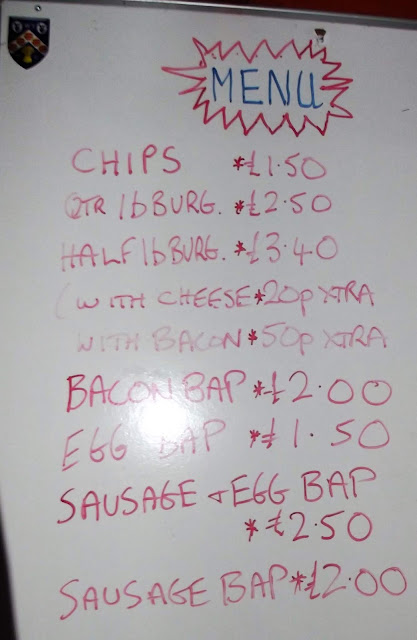 MENU
CHIPS *£1.50
QTR lb BURG. *£2.50
HALF lb BURG. *£3.40
(WITH CHEESE *20p XTRA
WITH BACON *50p XTRA
BACON BAP *£2.00
EGG BAP *£1.50
SAUSAGE + EGG BAP
*£2.50
SAUSAGE BAP *£2.00